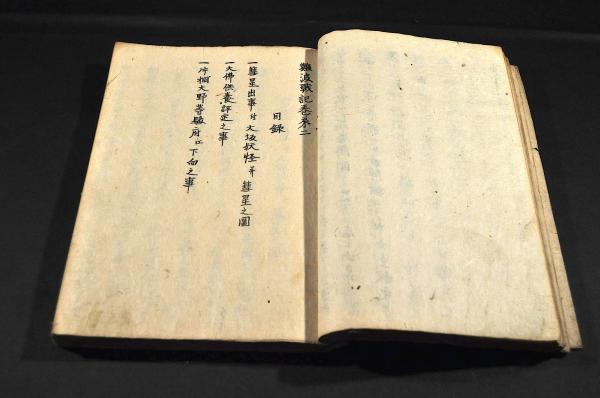 難波戦記巻第二
目録
一彗星出事付大坂妖怪并彗星之圖
一大佛供養評定之事
一片桐大野等駿府江下向之事